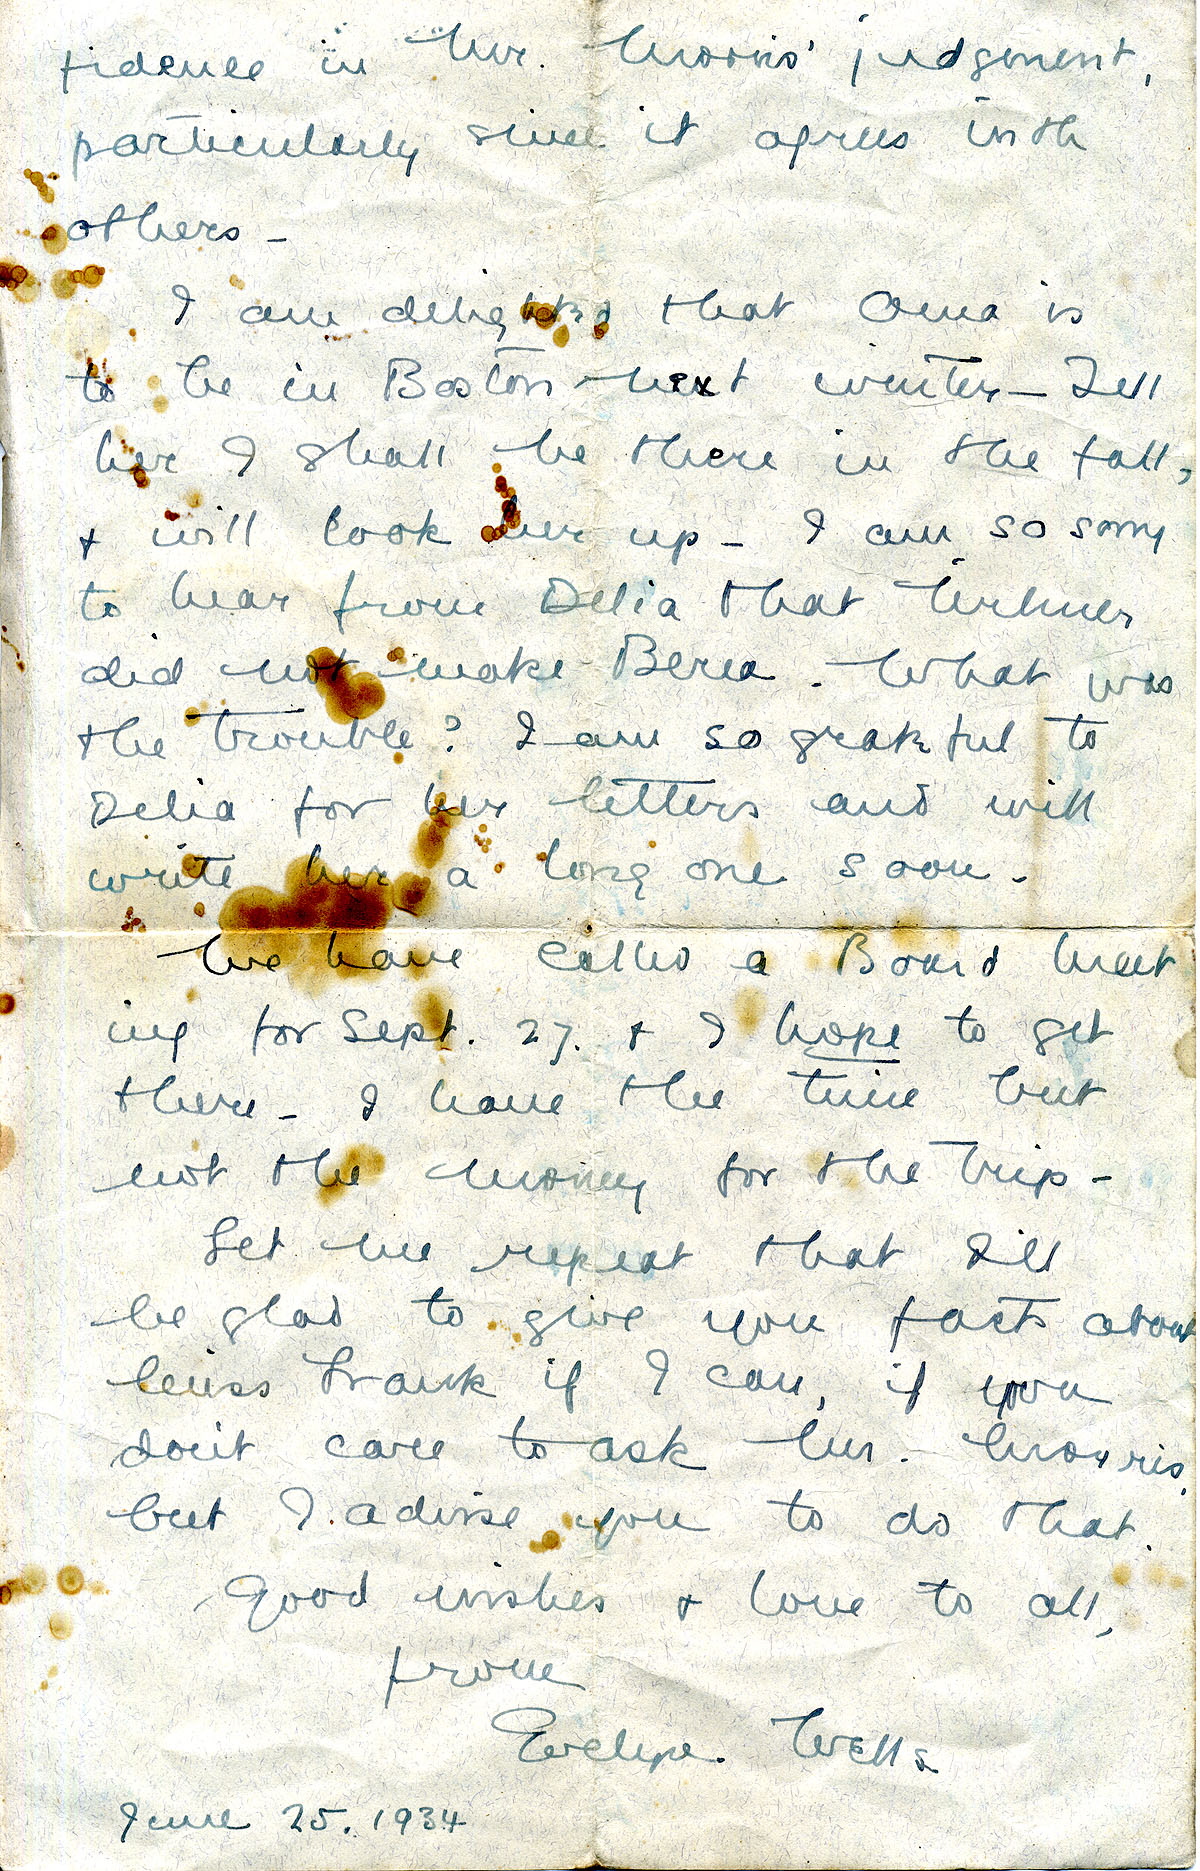 fidence in Mr. Morris' judgment,
particularly since it agrees with
others -
I am delighted that Oma is
to be in Boston next winter - Tell
her I shall be there in the fall,
+ will look her up - I am so sorry
to hear from Delia that
did not make Berea. What was
the trouble? I am so grateful to
Delia for her letters and will
write her a long one soon.
We have called a Board meet
ing for Sept. 27. + I hope to get
there - I have the time but
not the money for the trip -
Let me repeat that I'll
be glad to give you facts about
Miss Frank if I can, if you
don't care to ask Mr. Morris,
but I advise you to do that.
Good wishes + love to all,
from
Evelyn Wells
June 25. 1934